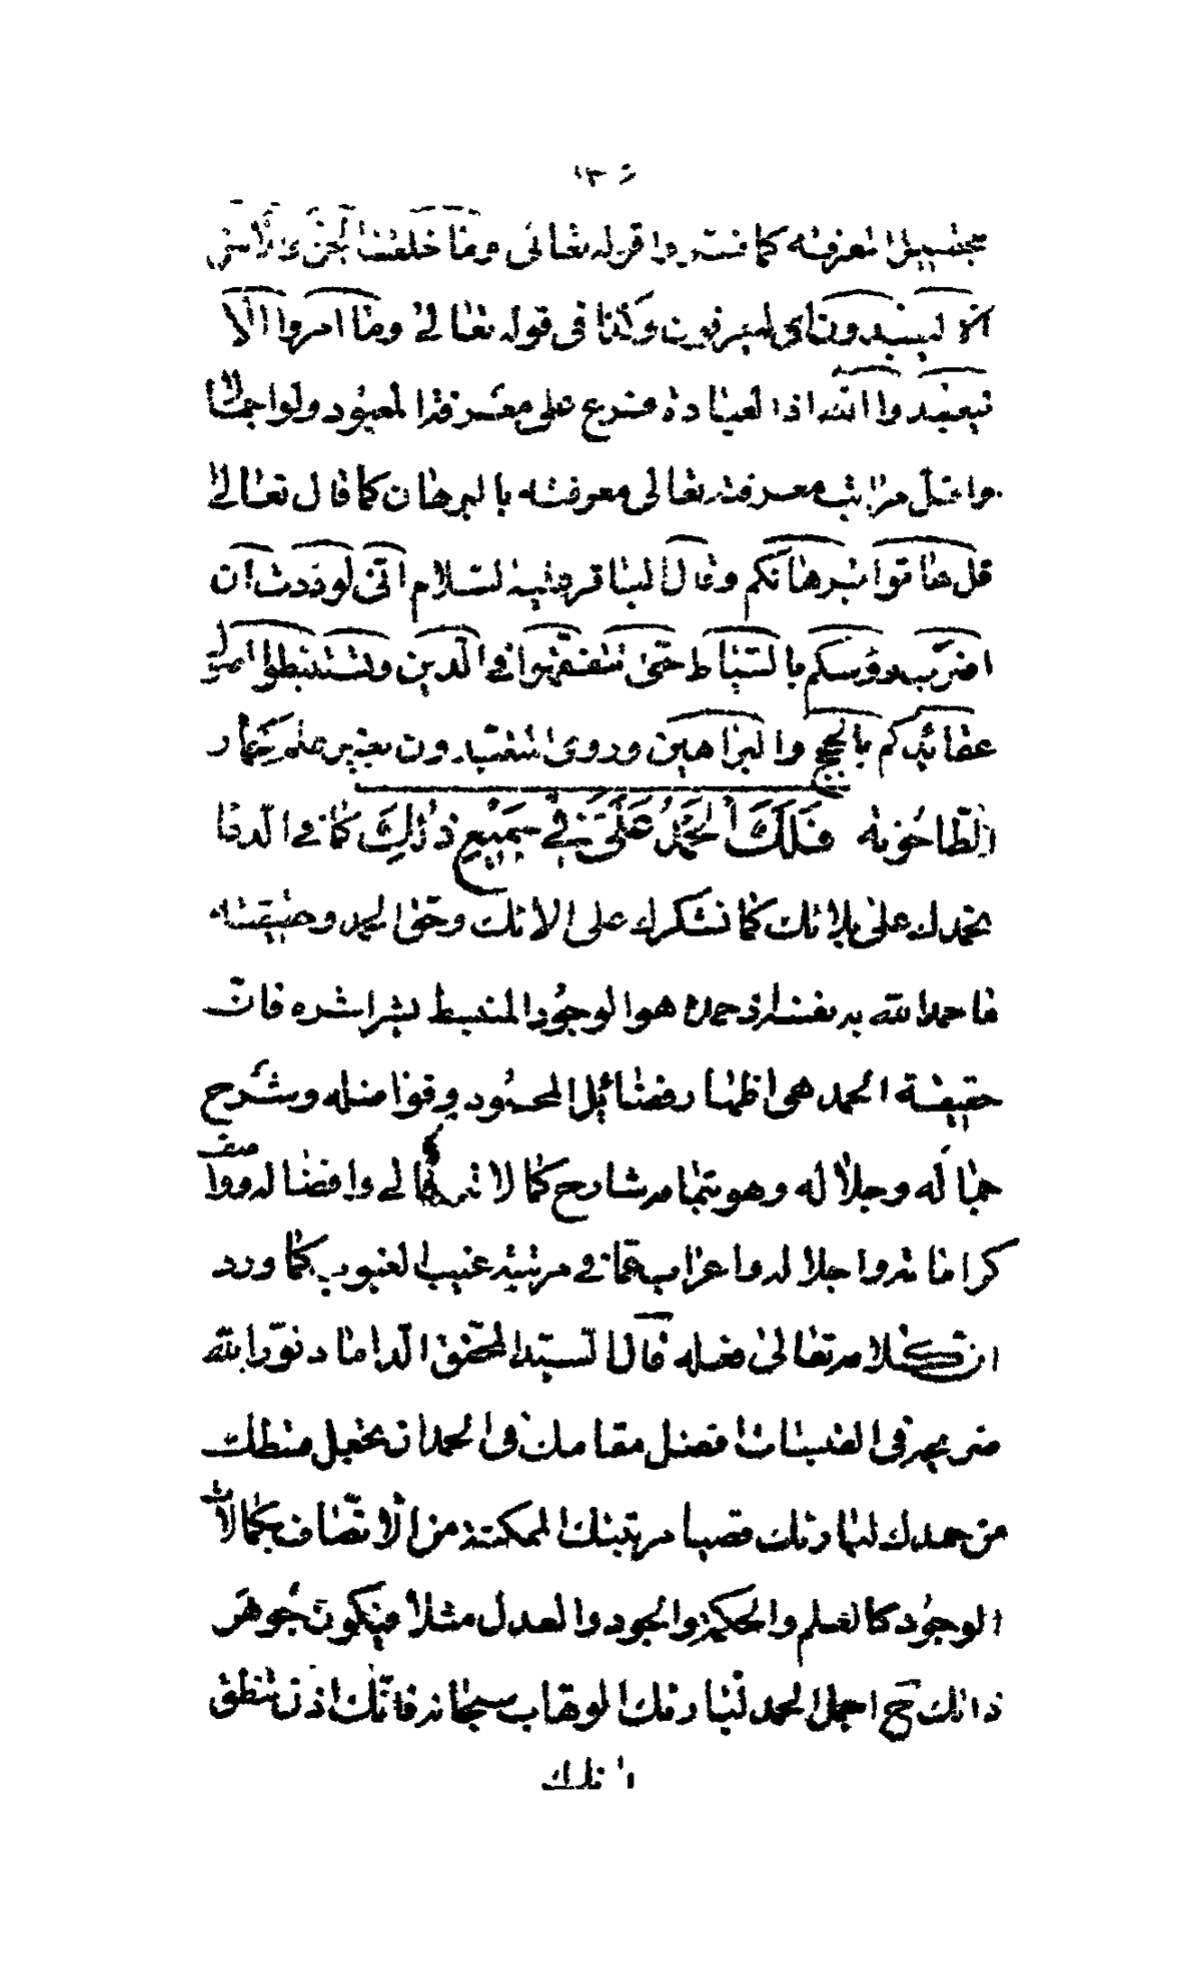 ١٣٠
بتحصيل المعرفة كما فسّروا قوله تعالى وما خلقت الجنّ والانس
الا ليعبدون اى ليعرفون وكذا فى قوله تعالى وما امروا الّا
ليعبدوا اللّه اذ العبادة فرع على معرفة المعبود ولو اجمالا
واقل مراتب معرفته تعالى معرفته بالبرهان كما قال تعالى
قل هاتوا برهانكم وقال الباقر عليه السّلام انّى لوددت ان
اضرب رؤسكم بالسّياط حتى تتفقّهوا فى الّدين وتستنبطوا اصول
عقائدكم بالحجج والبراهين وروى المتعبّدون بغير علم كحمار
الطّاحونة فَلَكَ الْحَمْدُ عَلَىَّ فِي جَمِيعِ ذٰلِكَ كما فى الدعا
نحمدك على بلائك كما نشكرك على الائك وحق الحمد وحقيقته
ما حمد اللّه به نفسه اذ حمده هو الوجود المنبسط بشراشره فانّ
حقيقة الحمد هى اظهار فضائل المحمود وفواضله وشرح
جماله وجلاله وهو بتمامه شارح كمالاته تعالى وافضاله وواصف
كراماته واجلاله واعراب عمّا فى مرتبة غيب الغيوب كما ورد
انّ كلامه تعالى فعله قال السيّد المحقّق الّداماد نوّر اللّه
ضريحه فى القبسات افضل مقاماتك فى الحمد ان تجعل منطلك
من حمدك لبارئك قصيا مرتبتك الممكنة من الاتّصاف بكمالات
الوجود كالعلم والحكمة والجود والعدل مثلا فيكون جوهر
ذاتك ح اجمل الحمد لبارئك الوهّاب سبحانه فانّك اذن تنطق
بلك